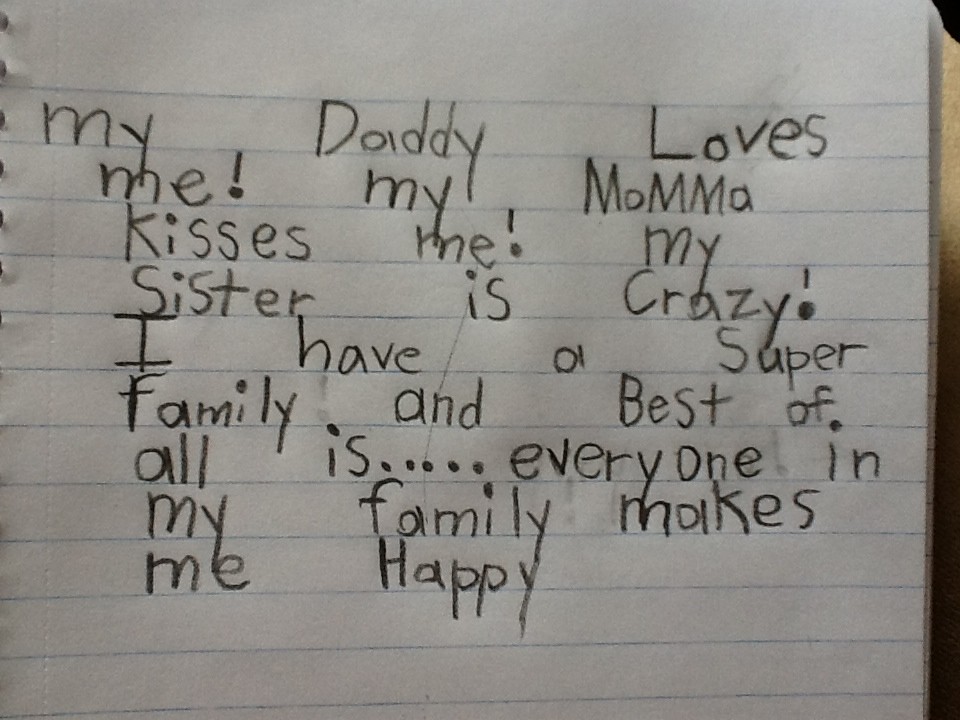 my Daddy Loves
me! my MoMMa
Kisses me! my
Sister is Crazy!
I have a Super
family. and Best of.
all is..... everyone in
my family makes
me Happy